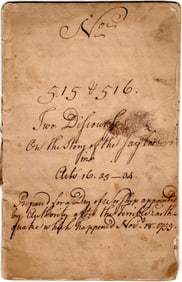 Nos
515 & 516.
Two Discourses
On the Story of the Jaylor
from
Acts 16. 25—34.
Prepared for a Day of Worship appointed
by Authority after the terrible Earth-
quake which happened Nov. 18. 1755.